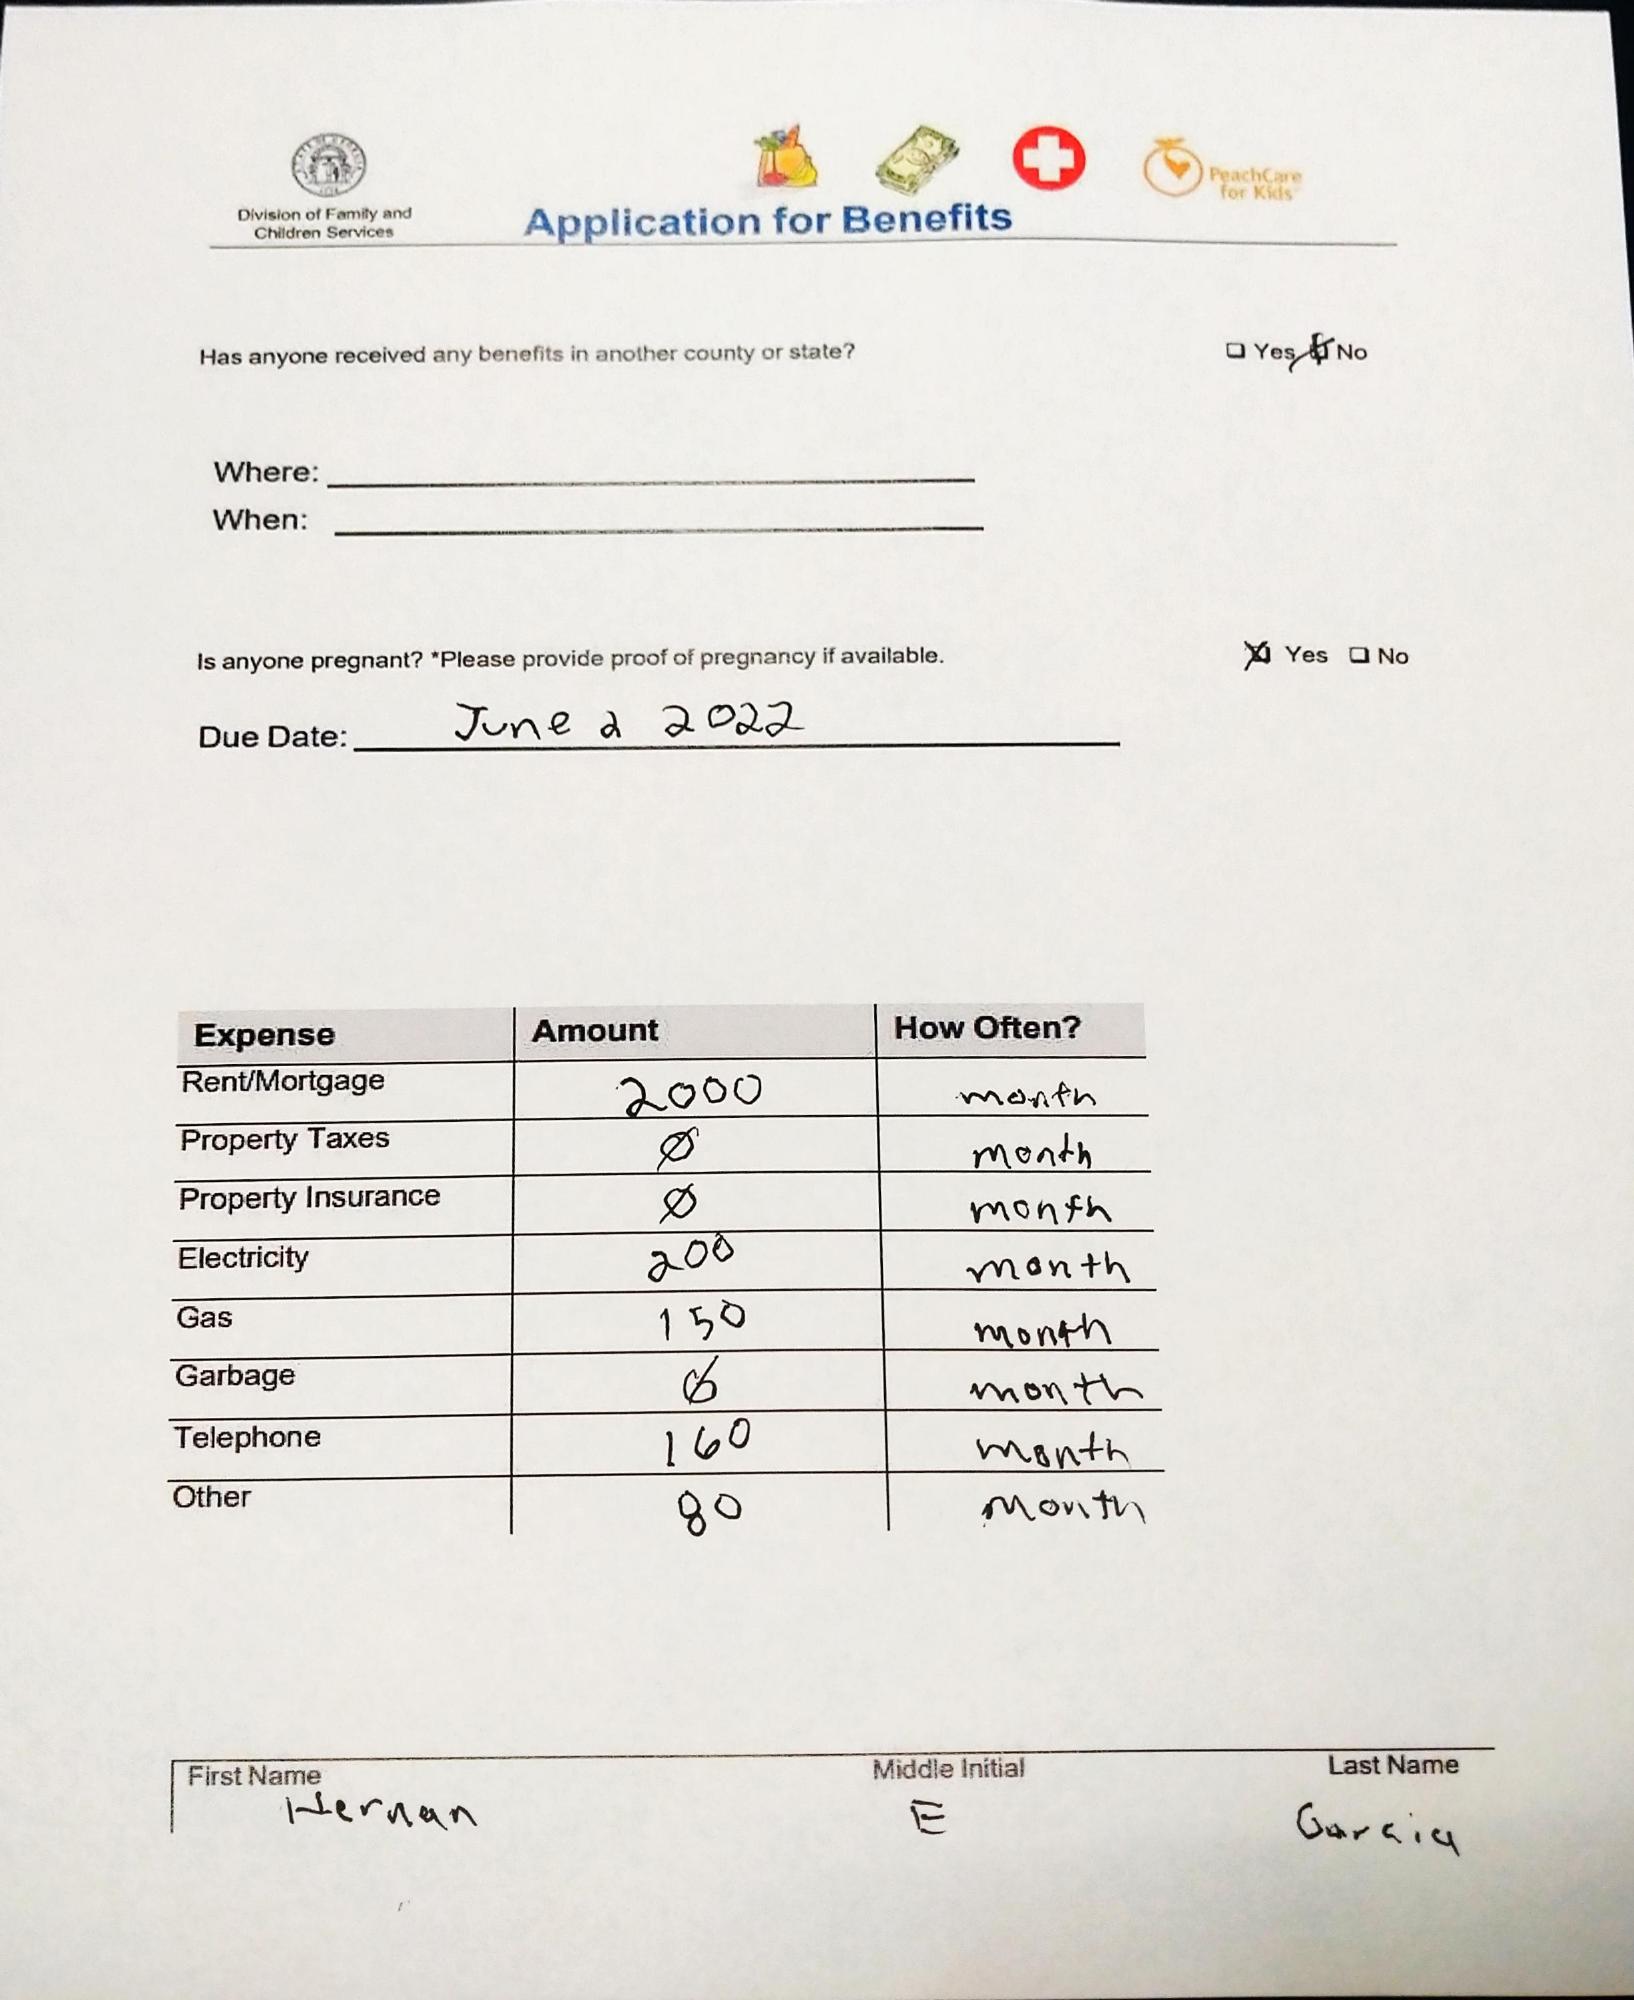 Division of Family and
Children Services
Application for Benefits
PeachCare
for Kids
Has anyone received any benefits in another county or state? ☐ Yes ☒ No
Where:
When:
Is anyone pregnant? *Please provide proof of pregnancy if available. ☒ Yes ☐ No
Due Date: June 2 2022
Expense Amount How Often?
Rent/Mortgage 2000 month
Property Taxes Ø month
Property Insurance Ø month
Electricity 200 month
Gas 150 month
Garbage Ø month
Telephone 160 month
Other 80 month
First Name Middle Initial Last Name
Hernan E Garcia